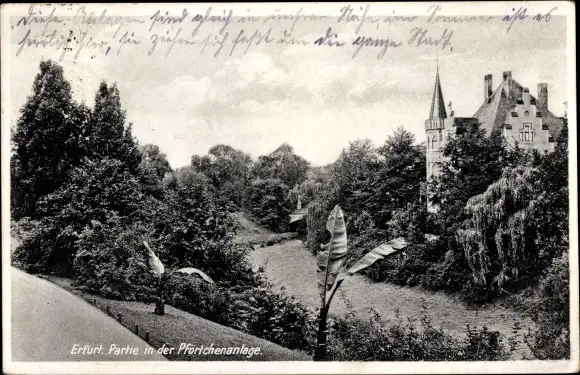 Diese Anlagen sind gleich in unsrer Nähe, im Sommer ist es
herrlich hier, sie ziehen sich fast um die ganze Stadt.
Erfurt. Partie in der Pförtchenanlage.